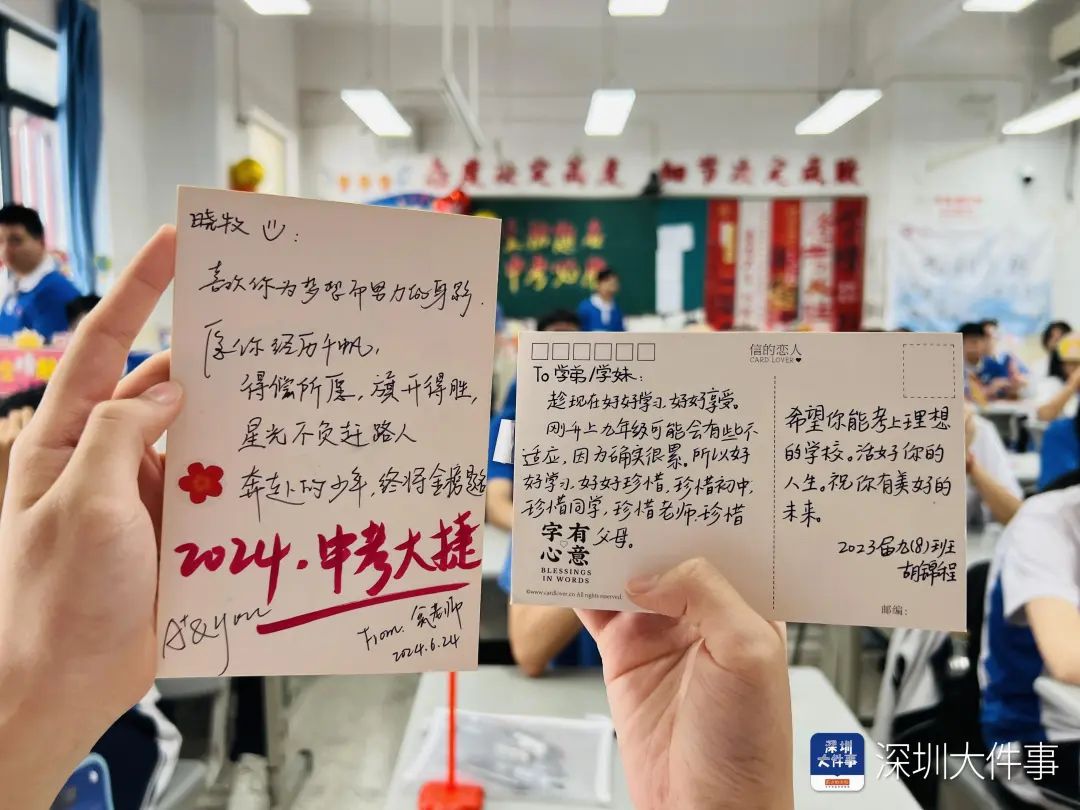 态度决定高度 细节决定成败
晓牧：
喜欢你为梦想而努力的身影.
愿你经历千帆，
得偿所愿，旗开得胜，
星光不负赶路人
奔赴的少年，终将金榜题名
2024.中考大捷
A+&you
From.
2024.6.24
信的恋人
CARD LOVER
To 学弟/学妹：
趁现在好好学习，好好享受。
刚升上九年级可能会有些不
适应，因为确实很累。所以好
好学习，好好珍惜，珍惜初中，
珍惜同学，珍惜老师，珍惜
父母。
字有
心意
BLESSINGS
IN WORDS
©www.cardlover.cn All rights reserved.
希望你能考上理想
的学校。活好你的
人生。祝你有美好的
未来。
2023届九(8)班
胡锦程
邮编：
深圳
大件事
深圳大件事